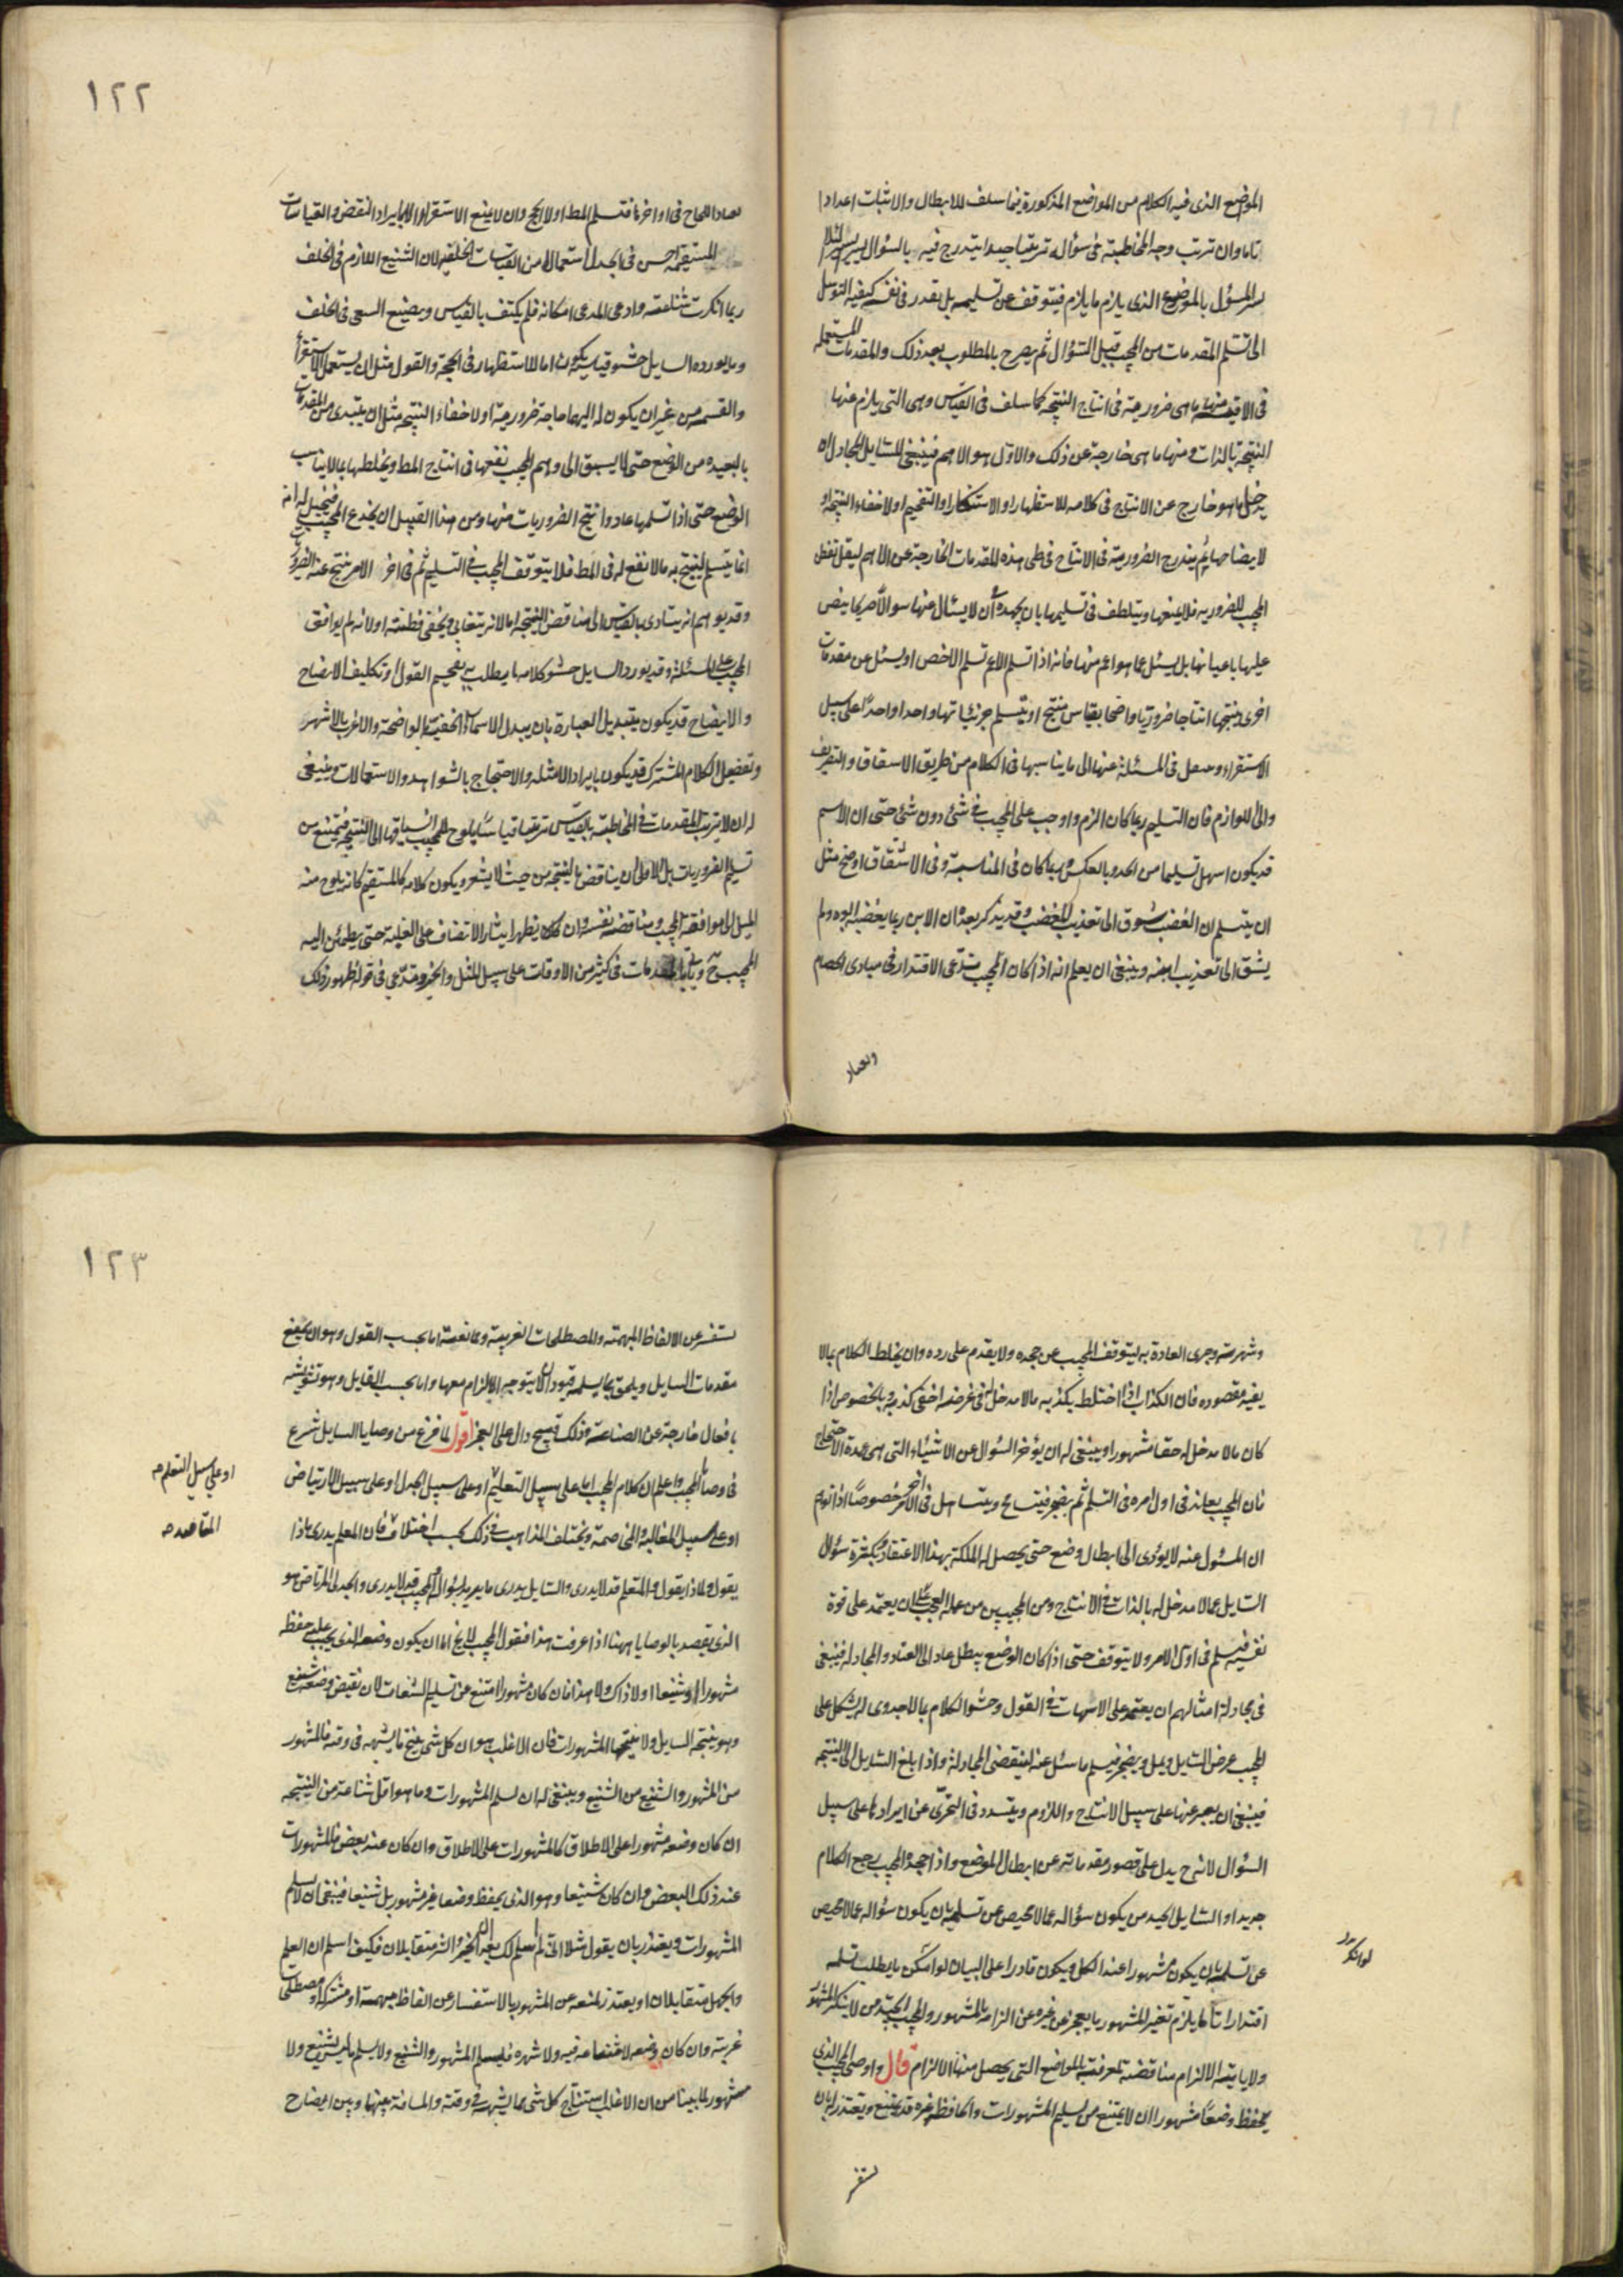 الموضع الذى فيه الكلام من المواضع المذكورة فيما سلف للابطال والاثبات اعدادا
تاما وان ترتب وجه المخاطبة فى سؤاله ترتيبا جيدا يتدرج فيه بالسؤال يسيرا يسيرا لئلا
المسؤل بالموضع الذى يلزم ما يلزم فيتوقف عن تسليمه بل يقدر فى نفسه كيفية التوسل
الى تسلم المقدمات من المجيب قبيل السؤال ثم يصرح بالمطلوب بعد ذلك والمقدمات المستعملة
فى الاقيسة منها ما هى ضرورية فى انتاج النتيجة كما سلف فى القياس وهى التى يلزم عنها
النتيجة بالذات ومنها ما هى خارجة عن ذلك والاول هو الاهم فينبغى للسايل المجادل ان
يدخل ما هو خارج عن الانتاج فى كلامه للاستظهار او الاستكثار او التفخيم او لاخفاء النتيجة او
لايضاحها ثم يندرج الضرورية فى الانتاج فى طى هذه المقدمات الخارجة عن الاهم ليقل تفطن
المجيب للضرورية فلا يمنعها ويتلطف فى تسليمها بان يجهد ان لا يسئال عنها سوالا صريحا ينص
عليها باعيانها بل يسئل عما هو اعم منها فانه اذا تسلم الاعم تسلم الاخص او يسئل عن مقدمات
اخرى ينتجها انتاجا ضروريا واضحا بقياس منتج او يتسلم جزئياتها واحدا واحدا على سبيل
الاستقراء و فى المسئلة عنها الى ما يناسبها فى الكلام من طريق الاشتقاق والتصريف
والى اللوازم فان التسليم ربما كان الزم واوجب على المجيب فى شئ دون شئ حتى ان الاسم
قد يكون اسهل تسليما من الحد وبالعكس وربما كان فى المناسبة وفى الاشتقاق اوضح مثل
ان يتسلم ان الغضب شوق الى تعذيب المغضب وقد يذكر بعده ان الابن ربما يغضب ابوه ولم
يشق الى تعذيب ابنه وينبغى ان يعلم انه اذا كان المجيب يدعى الاقتدار فى مبادى الخصام
ويصار
١٢٢
يصار اللجاج فى اواخرها فتسلم المط اولا الحج وان لا يمنع الاستقراء الا بايراد النقض والقياسات
المستقيمة احسن فى الجدل استعمالا من القياسات الخلفية لان الشنيع اللازم فى الخلف
ربما انكرت شناعته وادعى المدعى امكانه فلم يكتف بالقياس ويضيع السعى فى الخلف
وما يورده السايل حشو قياسه يكون اما للاستظهار فى الحجة والقول مثل ان يستعمل الاستقراء
والقسمة من غير ان يكون له اليهما حاجة ضرورية او لاخفاء النتيجة مثل ان يبتدى من المقدمات
بالبعيدة من الوضع حتى لا يسبق الى وهم المجيب نفعها فى انتاج المط ويخلطها بما لا يناسب
الوضع حتى اذا تسلمها عاد وانتج الضروريات منها ومن هذا القبيل ان يخدع المجيب فيخيل له انه
انما يتسلم لينتج به ما لا نفع له فى المط فلا يتوقف المجيب فى التسليم ثم فى اخر الامر ينتج عنه الضرورى
وقد يوهم انه يتادى بالقياس الى مناقض النتيجة اما لانه يتغابى ويخفى فطنته او لانه لم يوافق
المجيب على المسئلة وقد يورد السايل حشو كلامه ما يطلب به تفخيم القول وتكليف الايضاح
والايضاح قد يكون بتبديل العبارة بان يبدل الاسماء الخفية بالواضحة والاغرب بالاشهر
وتفصيل الكلام المشترك وقد يكون بايراد الامثلة والاحتجاج بالشواهد والاستعمالات وينبغى
له ان لا يرتب المقدمات فى المخاطبة بالقياس ترتيبا قياسيا يلوح للمجيب انسياقها الى النتيجة فيمتنع من
تسليم الضروريات بل الاولى ان يناقض بالنتيجة من حيث لا يشعر ويكون كلامه كالمستقيم كانه يلوح منه
الميل الى موافقة المجيب ومناقضة نفسه وان كان يظهر ايثار الانصاف على الغلبة حتى يطمئن اليه
المجيب ح وياتى بالمقدمات فى كثير من الاوقات على سبيل المثل والخبر ويدعى فى قوله ظهور ذلك
وشهرته وجرى العادة به ليتوقف المجيب عن جحده ولا يقدم على رده وان يخلط الكلام بما لا
يفيد مقصوده فان الكذاب اذا اختلط بكذبه ما لا مدخل له فى غرضه اخفى كذبه وبالخصوص اذا
كان ما لا مدخل له حقا مشهورا وينبغى له ان يؤخر السؤال عن الاشياء التى هى عمدة الاحتجاج
فان المجيب يعاند فى اول امره فى التسلم ثم يضجر فيتسامح ويتساهل فى اخر الامر خصوصا اذا توهم
ان المسؤل عنه لا يؤدى الى ابطال وضع حتى يحصل له الملكة بهذا الاعتقاد بكثرة سؤال
السايل عما لا مدخل له بالذات فى الانتاج ومن المجيبين من عمله العجب على ان يعتمد على قوة
نفسه فيسلم فى اول الامر ولا يتوقف حتى اذا كان الوضع يبطل عاد الى العناد والمجادلة فينبغى
فى مجادلة امثالهم ان يعتمد على الاسهاب فى القول وحشو الكلام بما لا جدوى له ليشكل على
المجيب غرض السايل ويمل ويضجر فيسلم ما سئل عنه لينقضى المجادلة واذا بلغ السايل الى النتيجة
فينبغى ان يعبر عنها على سبيل الانتاج واللزوم ويتشدد فى التحرى عن ايرادها على سبيل
السؤال لانه ح يدل على قصور مقدماته عن ابطال الموضع واذا جحده المجيب رجع الكلام
جديدا والسايل الجيد من يكون سؤاله عما لا محيص عن تسليمه بان يكون سؤاله عما لا محيص
عن تسلمه بان يكون مشهورا عند الكل ويكون قادرا على البيان لو امكن ما يطلب تسلمه
اقتدارا تاما يلزم تغير المشهور بما يعجز عن غيره عن الزامه بالمشهور والمجيب الجيد من لا ينكر المشهور
ولا ياباه الالزام مناقضة لمعرفته بالمواضع التى يحصل منها الالزام قال واوصى المجيب الذى
يحفظ وضعا مشهورا ان لا يمتنع من تسليم المشهورات والحافظ غيره قد يمتنع ويعتذر بان
يستفسر
١٢٣
يستفسر عن الالفاظ المبهمة والمصطلحات الغريبة وممانعته اما بحسب القول وهو ان يمنع
مقدمات السايل ويلحق بما يسلمه قيودا لا يتوجه الالزام معها واما بحسب القايل وهو تشويشه
بافعال خارجة عن الصناعة وذلك قبيح دال على العجز اقول لما فرغ من وصايا السايل شرع
فى وصايا المجيب واعلم ان كلام المجيب اما على سبيل التعليم او على سبيل الجدل او على سبيل الارتياض
او على سبيل التعلم صح
او على سبيل المغالبة والمخاصمة ويختلف المذاهب فى ذلك بحسب اختلاف فان المعلم يدرى ماذا
المقاصد صح
يقول ولماذا يقول والمتعلم قد لا يدرى والسايل يدرى ما يريد بالسؤال والمجيب قد لا يدرى والجدلى المرتاض هو
الذى يقصد بالوصايا ههنا اذا عرفت هذا فنقول المجيب لا يخ اما ان يكون وضعه الذى يجب عليه حفظه
مشهورا او شنيعا او لا ذاك ولا هذا فان كان مشهورا امتنع من تسليم الشنعات لان نقيض وضعه شنيع
وهو نتيجة السايل ولا ينتجها المشهورات فان الاغلب هو ان كل شى ينتج ما يشبهه فى وقته فالمشهور
من المشهور والشنيع من الشنيع وينبغى له ان يسلم المشهورات وما هو اقل شناعة من النتيجة
ان كان وضعه مشهورا على الاطلاق كالمشهورات على الاطلاق وان كان عند بعض فالمشهورات
عند ذلك البعض وان كان شنيعا وهو الذى يحفظ وضعا غير مشهور بل شنيعا فينبغى ان لا يسلم
المشهورات ويعتذر بان يقول مثلا انى لم اسلم لك بعد ان الخير والشر متقابلان فكيف اسلم ان العلم
والجهل متقابلان او يعتذر لمنعه عن المشهور بالاستفسار عن الفاظ مبهمة او مشتركة او مصطلحات
غريبة وان كان وضعه لا شناعة فيه ولا شهرة فليسلم المشهور والشنيع ولا يسلم ما ليس بشنيع ولا
مشهور لما بينا من ان الاغلب استنتاج كل شى مما يشبهه فى وقته والمسافة بينها وبين ايضاح